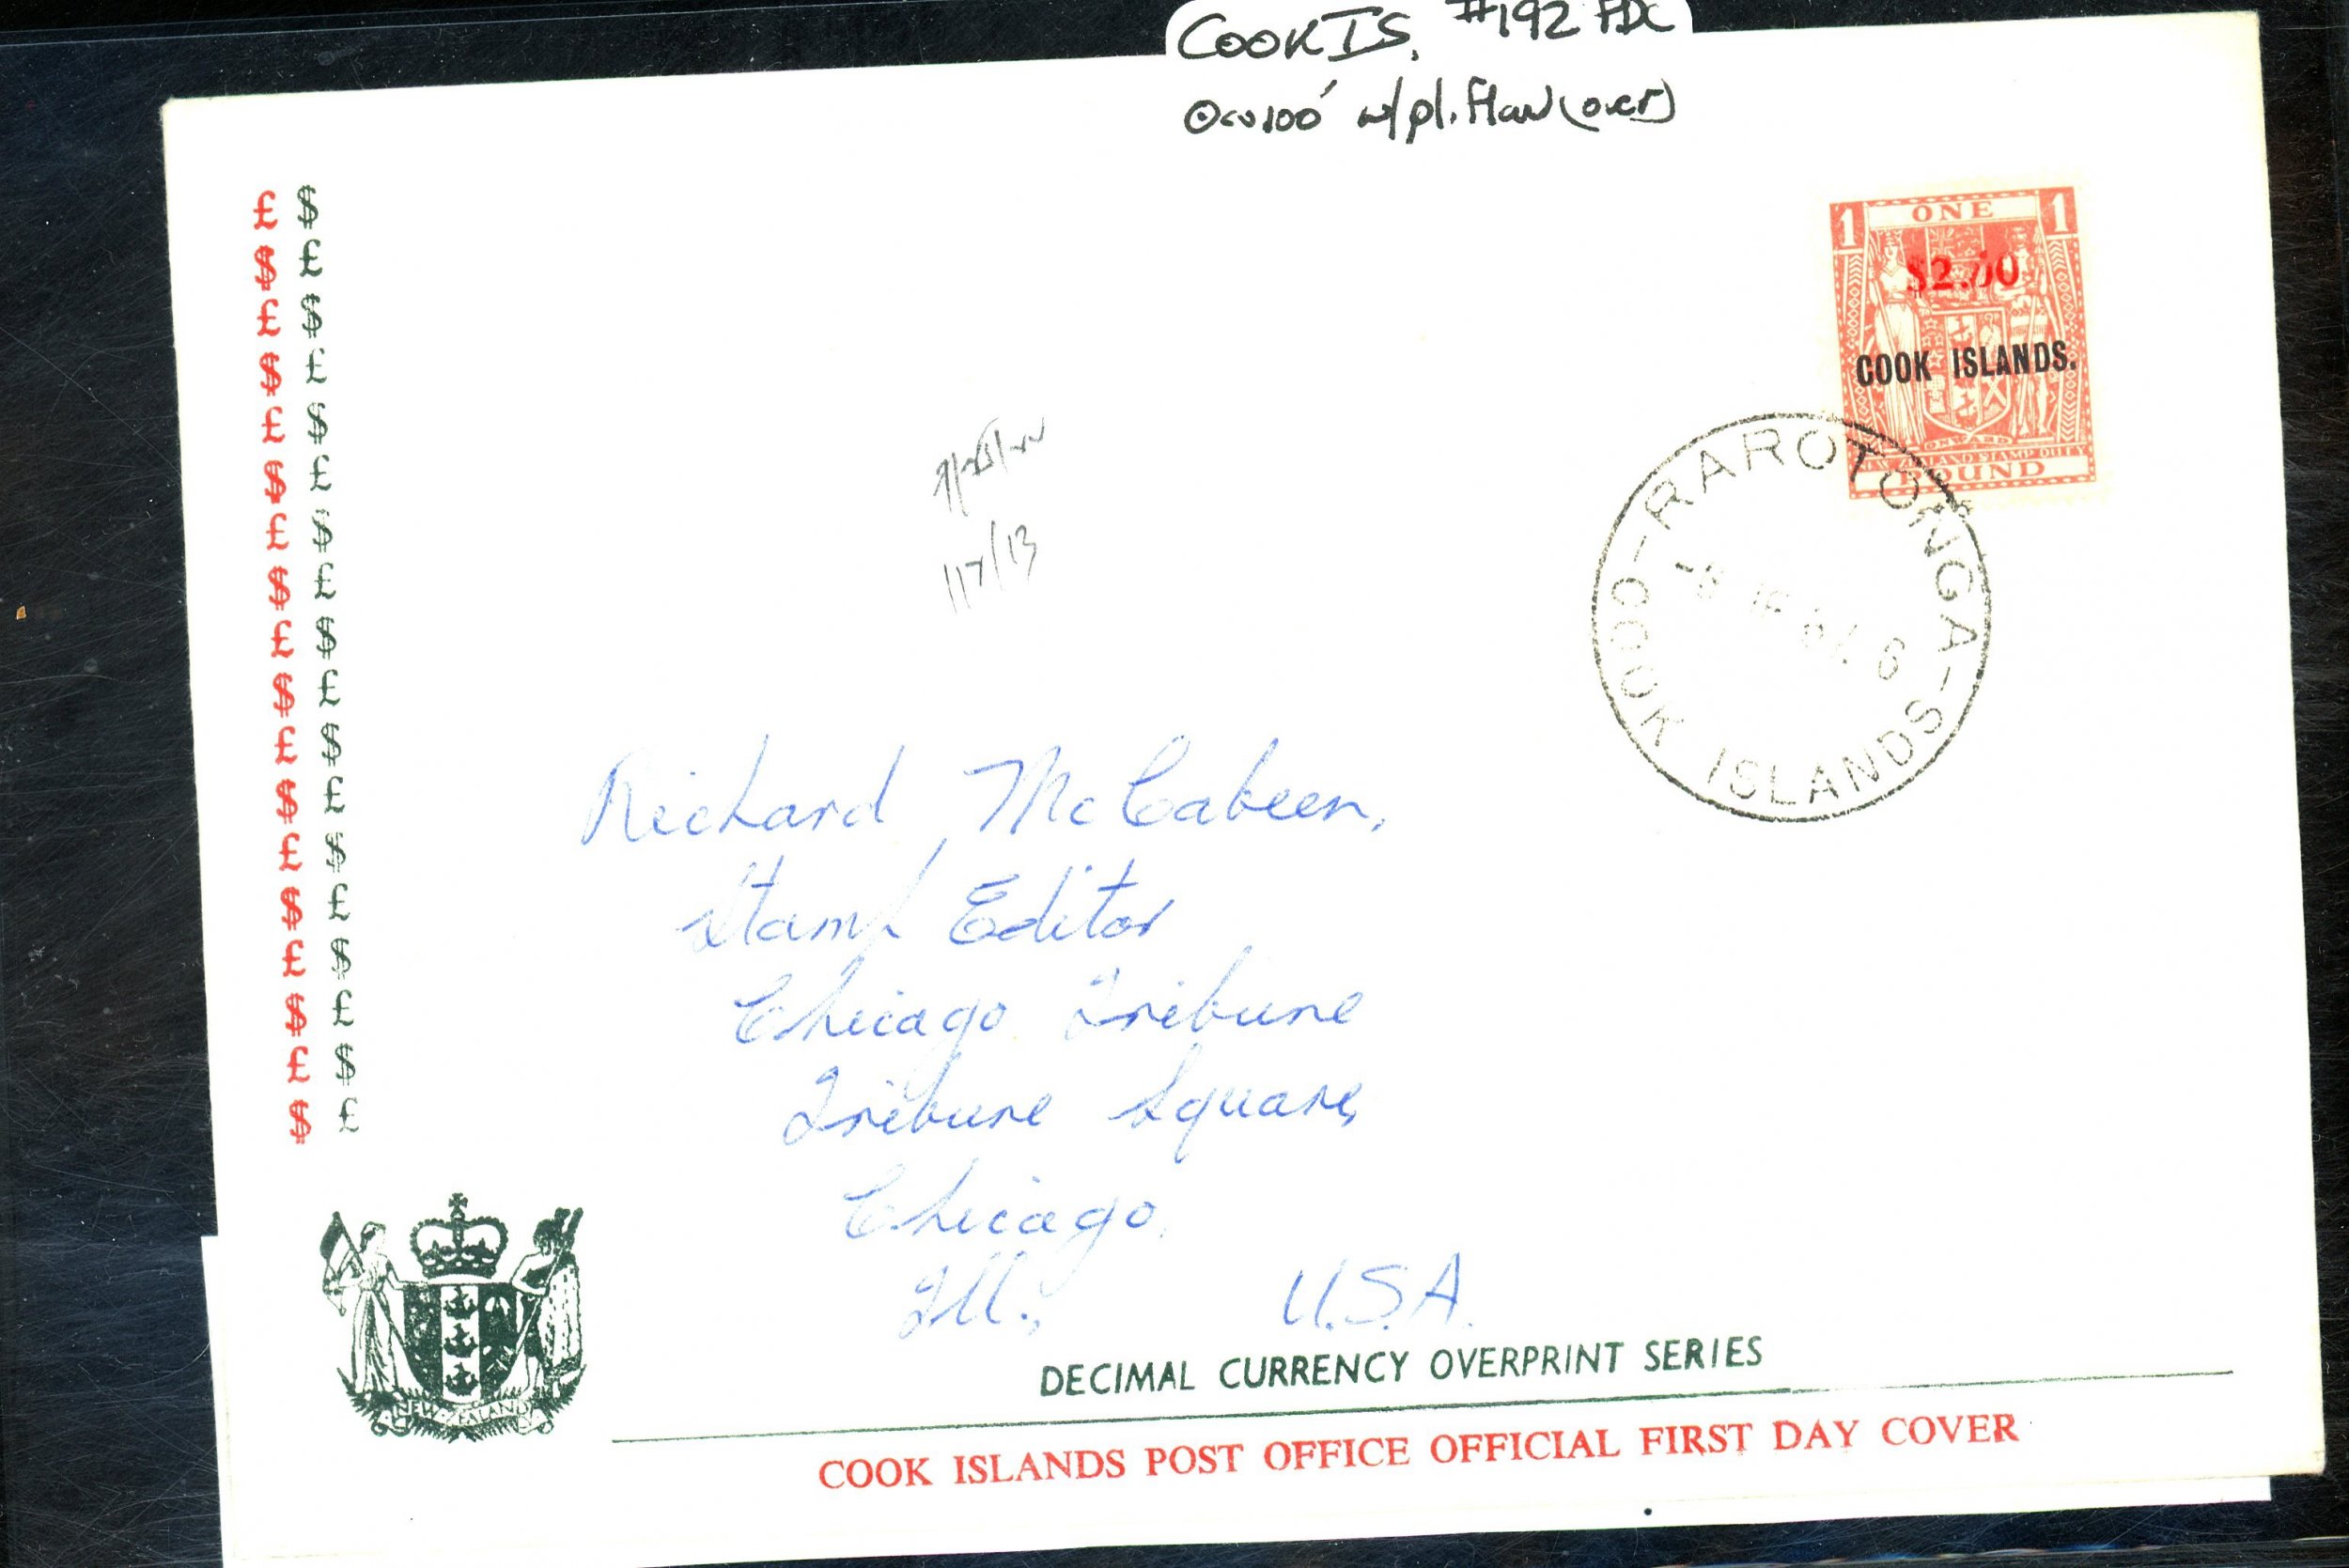 COOK IS. #192 FDC
cv100 w/pl. flaw (over)
£ $
$ £
£ $
$ £
£ $
$ £
£ $
$ £
£ $
$ £
£ $
$ £
£ $
$ £
£ $
$ £
£ $
$ £
1 ONE 1
$2.00
COOK ISLANDS.
NEW ZEALAND STAMP DUTY
POUND
RAROTONGA
COOK ISLANDS
117/13
Richard McCabeen,
Stamp Editor
Chicago Tribune
Tribune Square,
Chicago,
Ill., U.S.A.
NEW ZEALAND
DECIMAL CURRENCY OVERPRINT SERIES
COOK ISLANDS POST OFFICE OFFICIAL FIRST DAY COVER